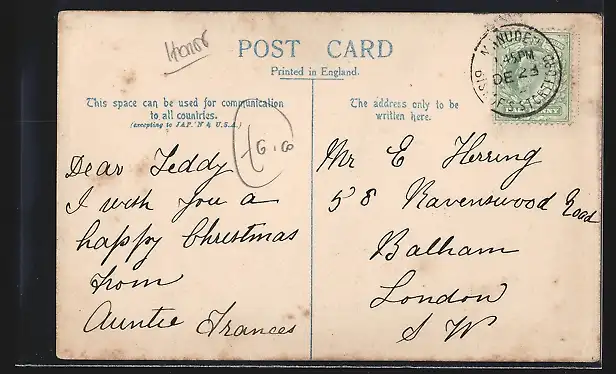 Horses
POST CARD
Printed in England.
This space can be used for communication
to all countries.
(excepting to JAP'N & U.S.A.)
The address only to be
written here.
Dear Teddy
I wish you a
happy Christmas
from
Auntie Frances
Mr E Herring
58 Ravenswood Road
Balham
London
S W
MANUDEN
1.45PM
DE 23
BISHOP'S STORTFORD